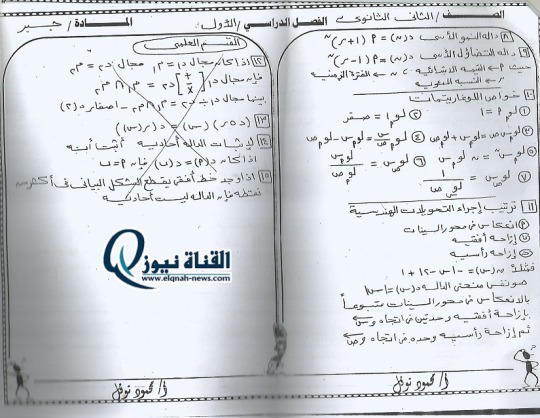 الصف / الثانى الثانوى    الفصل الدراسى / الأول    المادة / جبر
٨ دالة النمو الأسى د(ن) = P (١+ر)ن
٩ دالة التضاؤل الأسى د(ن) = P (١-ر)ن
حيث P القيمة الابتدائية ، ن الفترة الزمنية
ر النسبة المئوية
١٠ خواص اللوغاريتمات
١ لوP P = ١    ٢ لوP ١ = صفر
٣ لوP س ص = لوP س + لوP ص    ٤ لوP س/ص = لوP س - لوP ص
٥ لوP سن = ن لوP س    ٦ لوص س = لوP س / لوP ص
٧ لوص س = ١ / لوس ص
١١ ترتيب إجراء التحويلات الهندسية
P انعكاس فى محور السينات
إزاحة أفقية
إزاحة رأسية
فمثلاً ر(س) = -|س-٢| + ١
هو نفس منحنى الدالة د(س) = |س|
بالانعكاس فى محور السينات متبوعاً
بإزاحة أفقية وحدتين فى اتجاه وس
ثم إزاحة رأسية وحدة فى اتجاه وص
أ/ محمود نوفل
القسم العلمى
١٢ إذا كان مجال د١ = م١ ، مجال د٢ = م٢
فإن مجال د١ [+ - ×] د٢ = م١ ∩ م٢
بينما مجال د١ ÷ د٢ = م١ ∩ م٢ - أصفار د(٢)
١٣ (د ٥ ر) (س) = د (ر(س))
١٤ لإثبات الدالة أحادية أثبت أنه
إذا كان د(P) = د(ب) فإن P = ب
١٥ إذا وجد خط أفقى يقطع الشكل البيانى فى أكثر من
نقطة فإن الدالة ليست أحادية
القناة نيوز
www.elqnah-news.com
أ/ محمود نوفل